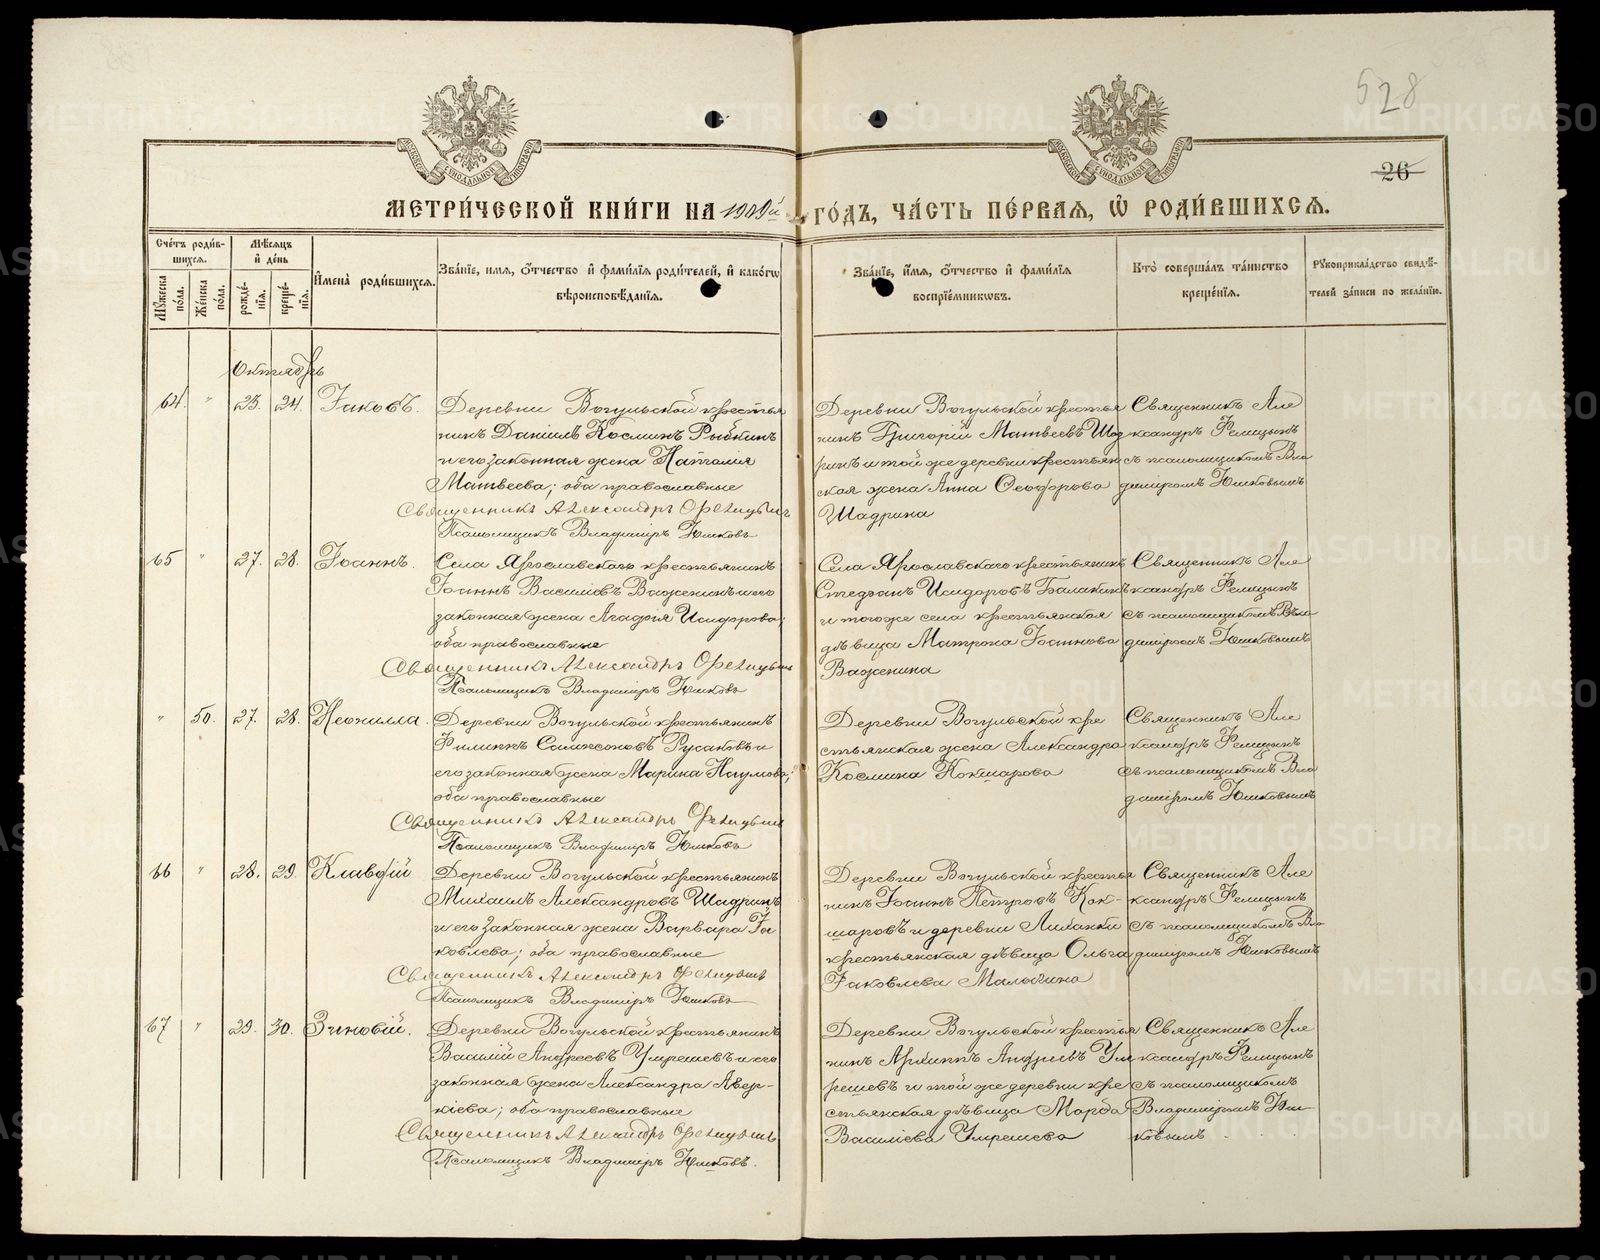 528
26
МЕТРИ́ЧЕСКОЙ КНИ́ГИ НА 1909й ГО́ДЪ, ЧА́СТЬ ПЕ́РВАЯ, Ѽ РОДИ́ВШИХСЯ.
Сче́тъ роди́в-
шихся.
Мѣ́сяцъ
и́ де́нь
Мꙋ́жеска по́ла.
Же́нска по́ла.
рожде́-
нїѧ.
креще́-
нїѧ.
И҆мена̀ роди́вшихся.
Зва́нїе, и́мя, ѻ҆́тчество и҆ фами́лїя роди́телей, и҆ како́гѡ
вѣроисповѣ́данїя.
Зва́нїе, и́мя, ѻ҆́тчество и҆ фами́лїя
воспрїе́мникѡвъ.
Кто̀ соверша́лъ та́инство
креще́нїя.
Рꙋкоприкла́дство свидѣ́-
телей за́писи по жела́нїю.
Октябрь
64. " 23. 24. Іаковъ.
Деревни Вогульской крестья
нинъ Даніилъ Космин Рыбкинъ
и его законная жена Наталия
Матвеева; оба православные
Священникъ Александръ
Псаломщикъ Владиміръ Юшковъ
Деревни Вогульской крестья
нинъ Григорій Матвеевъ Шад
ринъ и той же деревни крестьян
ская жена Анна Феодорова
Шадрина
Священникъ Але
ксандръ
съ псаломщикомъ Вла
диміромъ Юшковымъ
65 " 27. 28. Іоаннъ.
Села Ярославскаго крестьянинъ
Іоаннъ Василіевъ Важенинъ и его
законная жена Агафія Исидорова;
оба православные
Священникъ Александръ
Псаломщикъ Владиміръ Юшковъ
Села Ярославскаго крестьянинъ
Стефанъ Исидоровъ Балакинъ
и того же села крестьянская
дѣвица Матрона Іоаннова
Важенина
Священникъ Але
ксандръ
съ псаломщикомъ Вла
диміромъ Юшковымъ
" 50. 27. 28. Неонилла.
Деревни Вогульской крестьянинъ
Филиппъ Самсоновъ Русаковъ и
его законная жена Марина Наумова;
оба православные
Священникъ Александръ
Псаломщикъ Владиміръ Юшковъ
Деревни Вогульской кре
стьянская жена Александра
Космина Кокшарова
Священникъ Але
ксандръ
съ псаломщикомъ Вла
диміромъ Юшковымъ
66 " 28. 29. Клавдій
Деревни Вогульской крестьянинъ
Михаилъ Александровъ Шадринъ
и его законная жена Варвара Іа
ковлева; оба православные
Священникъ Александръ
Псаломщикъ Владиміръ Юшковъ
Деревни Вогульской крестья
нинъ Іоаннъ Петровъ Кок-
шаровъ и деревни
крестьянская дѣвица Ольга
Іаковлева Малыгина
Священникъ Але
ксандръ
съ псаломщикомъ Вла
диміромъ Юшковымъ
67 " 29. 30. Зиновій.
Деревни Вогульской крестьянинъ
Василій Андреевъ Упрешевъ и его
законная жена Александра Авер-
кіева; оба православные
Священникъ Александръ
Псаломщикъ Владиміръ Юшковъ.
Деревни Вогульской крестья
нинъ Архиппъ Андреевъ
и той же деревни кре
стьянская дѣвица Марфа
Василіева
Священникъ Але
ксандръ
съ псаломщикомъ
Владиміромъ Юш
ковымъ
METRIKI.GASO-URAL.RU